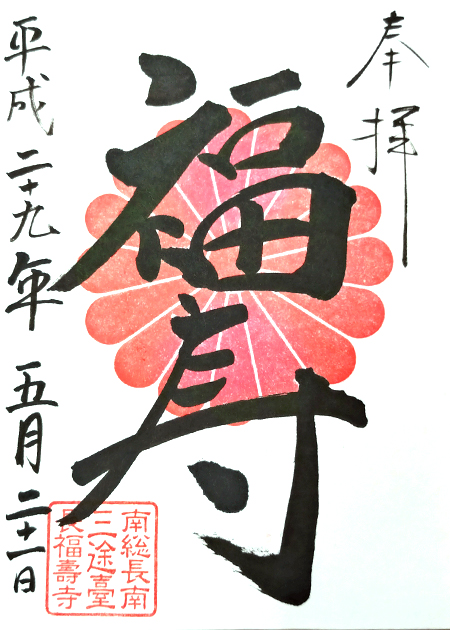 奉拝
福寿
平成二十九年五月二十一日
南総長南
三途臺
長福壽寺